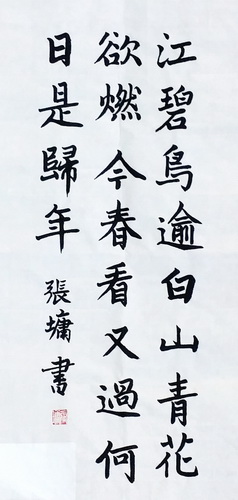 江碧鳥逾白山青花
欲燃今春看又過何
日是歸年
張墉書